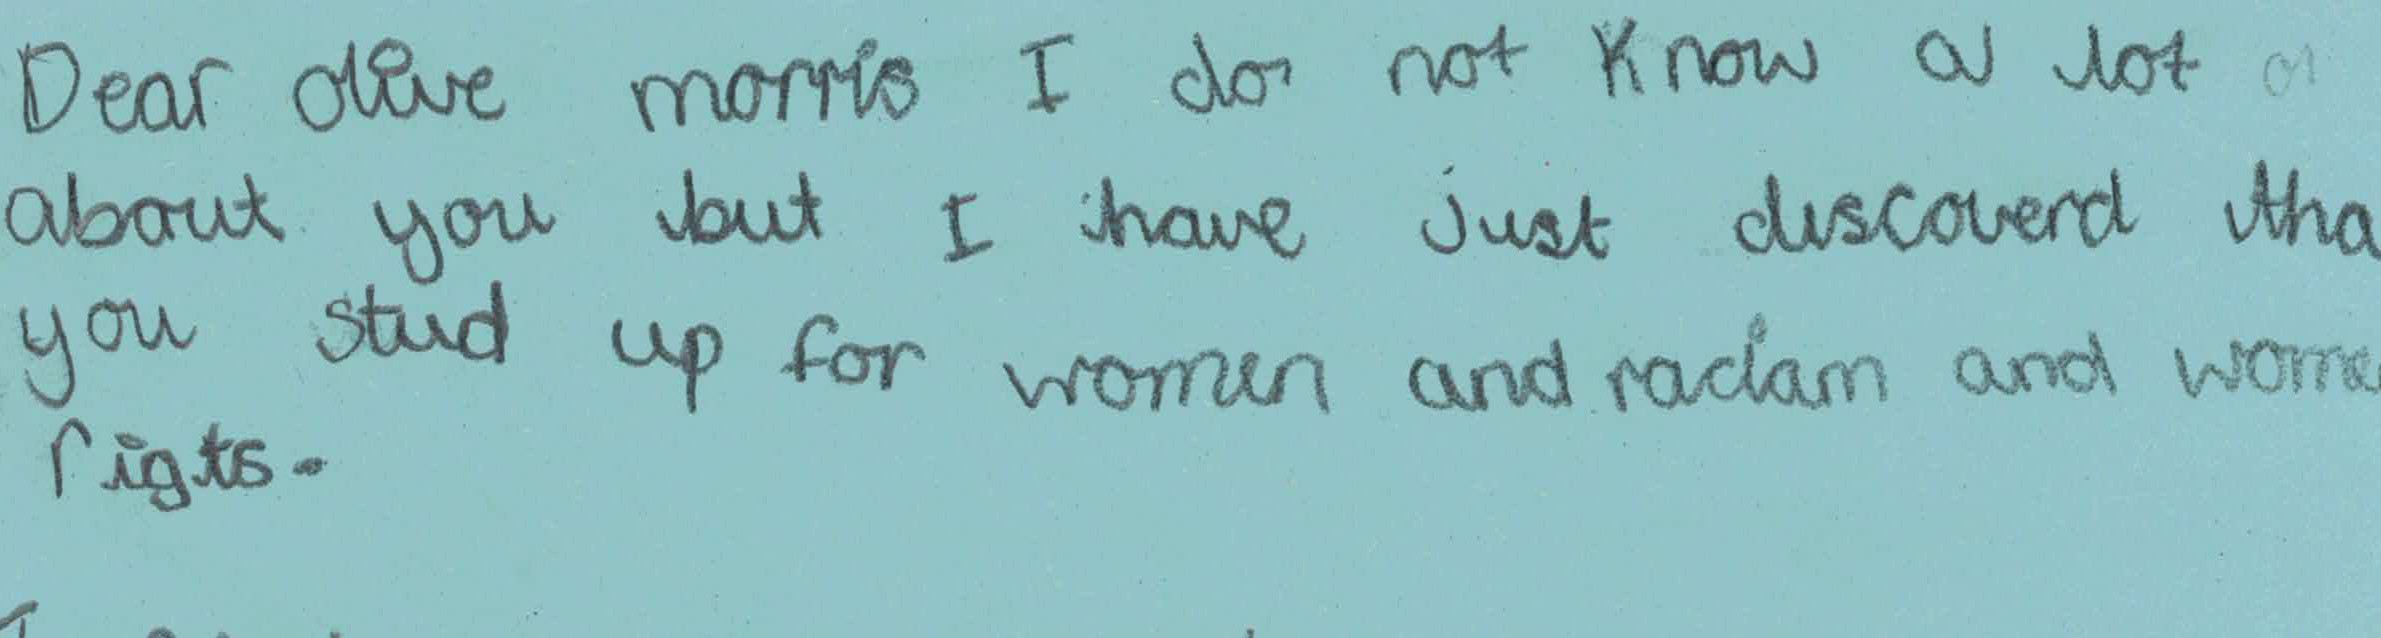 Dear olive morris I do not know a lot a
about you but I have just discoverd tha
you stud up for women and raciam and wome
rigts.